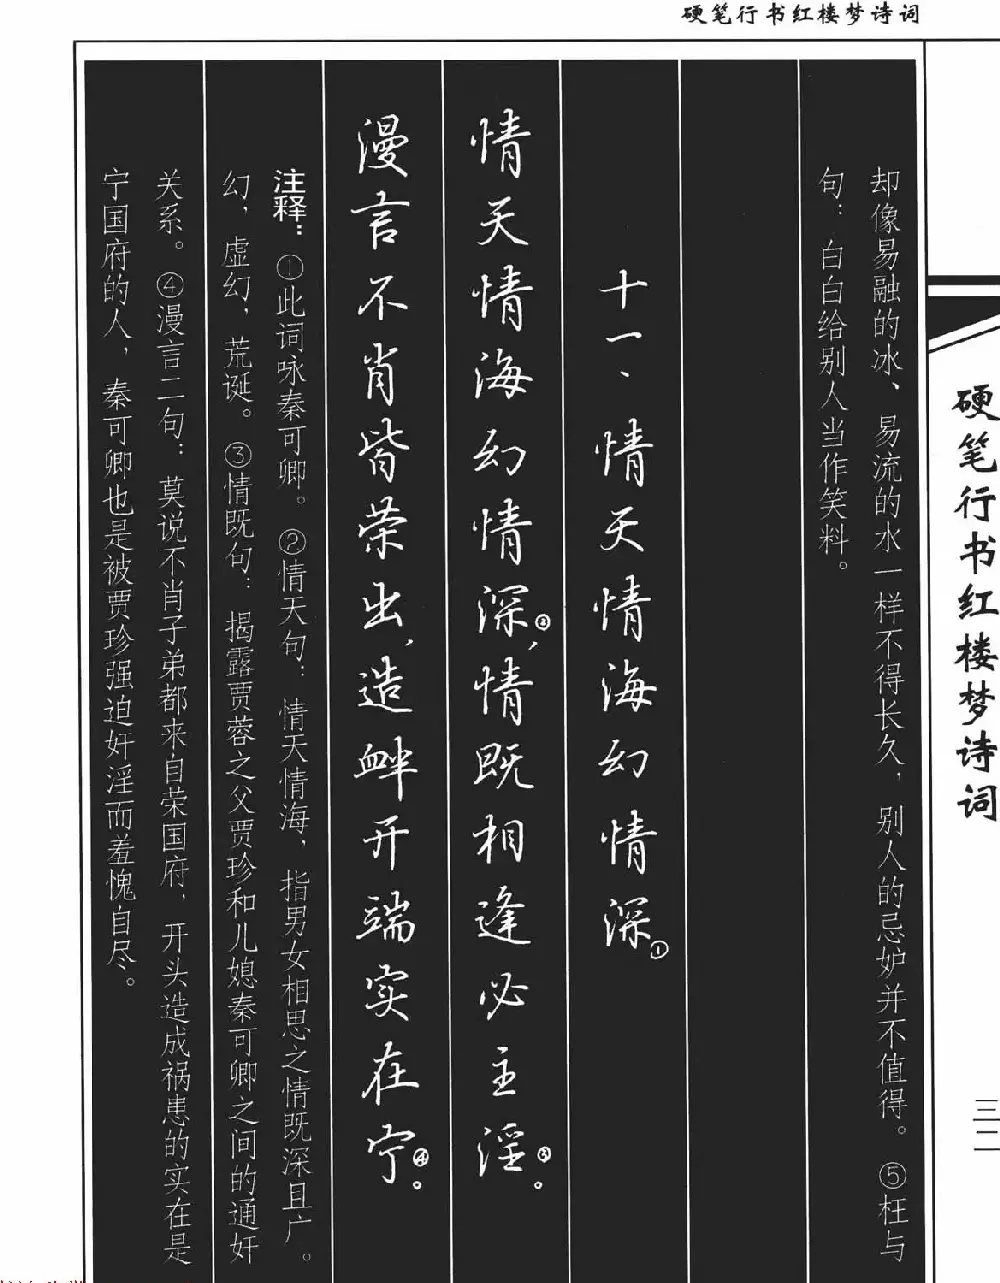 硬笔行书红楼梦诗词
硬笔行书红楼梦诗词
三二
却像易融的冰、易流的水一样不得长久，别人的忌妒并不值得。⑤枉与
句：白白给别人当作笑料。
十一、情天情海幻情深①
情天情海幻情深②，情既相逢必主淫③。
漫言不肖皆荣出，造衅开端实在宁④。
注释：①此词咏秦可卿。②情天句：情天情海，指男女相思之情既深且广。
幻，虚幻，荒诞。③情既句：揭露贾蓉之父贾珍和儿媳秦可卿之间的通奸
关系。④漫言二句：莫说不肖子弟都来自荣国府，开头造成祸患的实在是
宁国府的人，秦可卿也是被贾珍强迫奸淫而羞愧自尽。